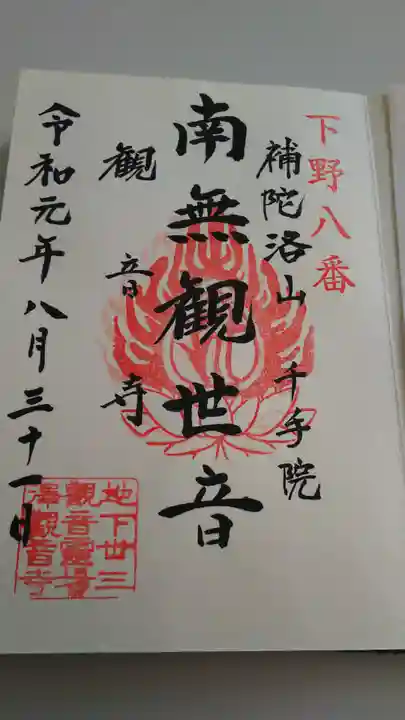 下野八番
補陀洛山 千手院
南無観世音
観音寺
令和元年八月三十一日
下丗三
觀音靈場
澤觀音寺